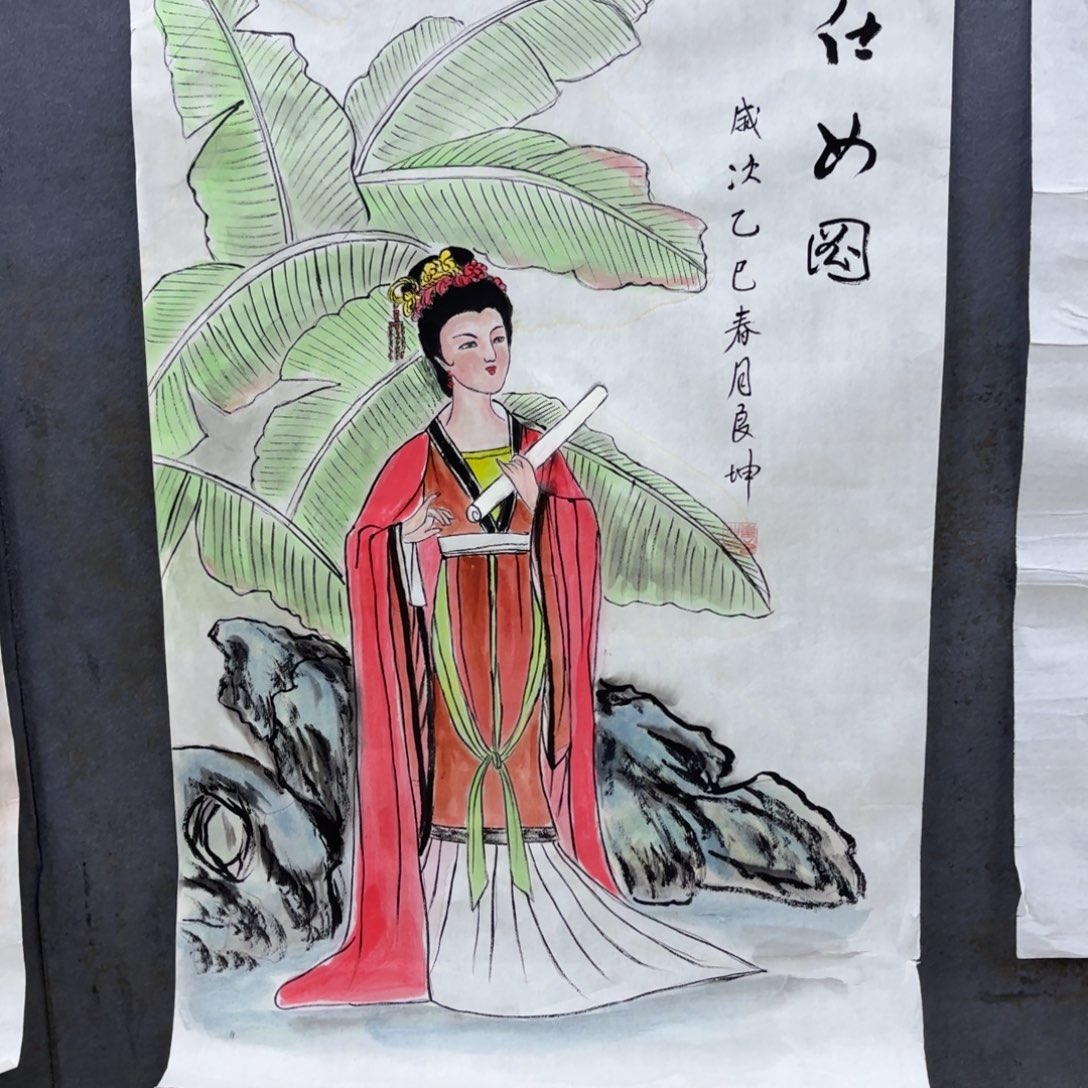 仕女图
岁次乙巳春月良坤